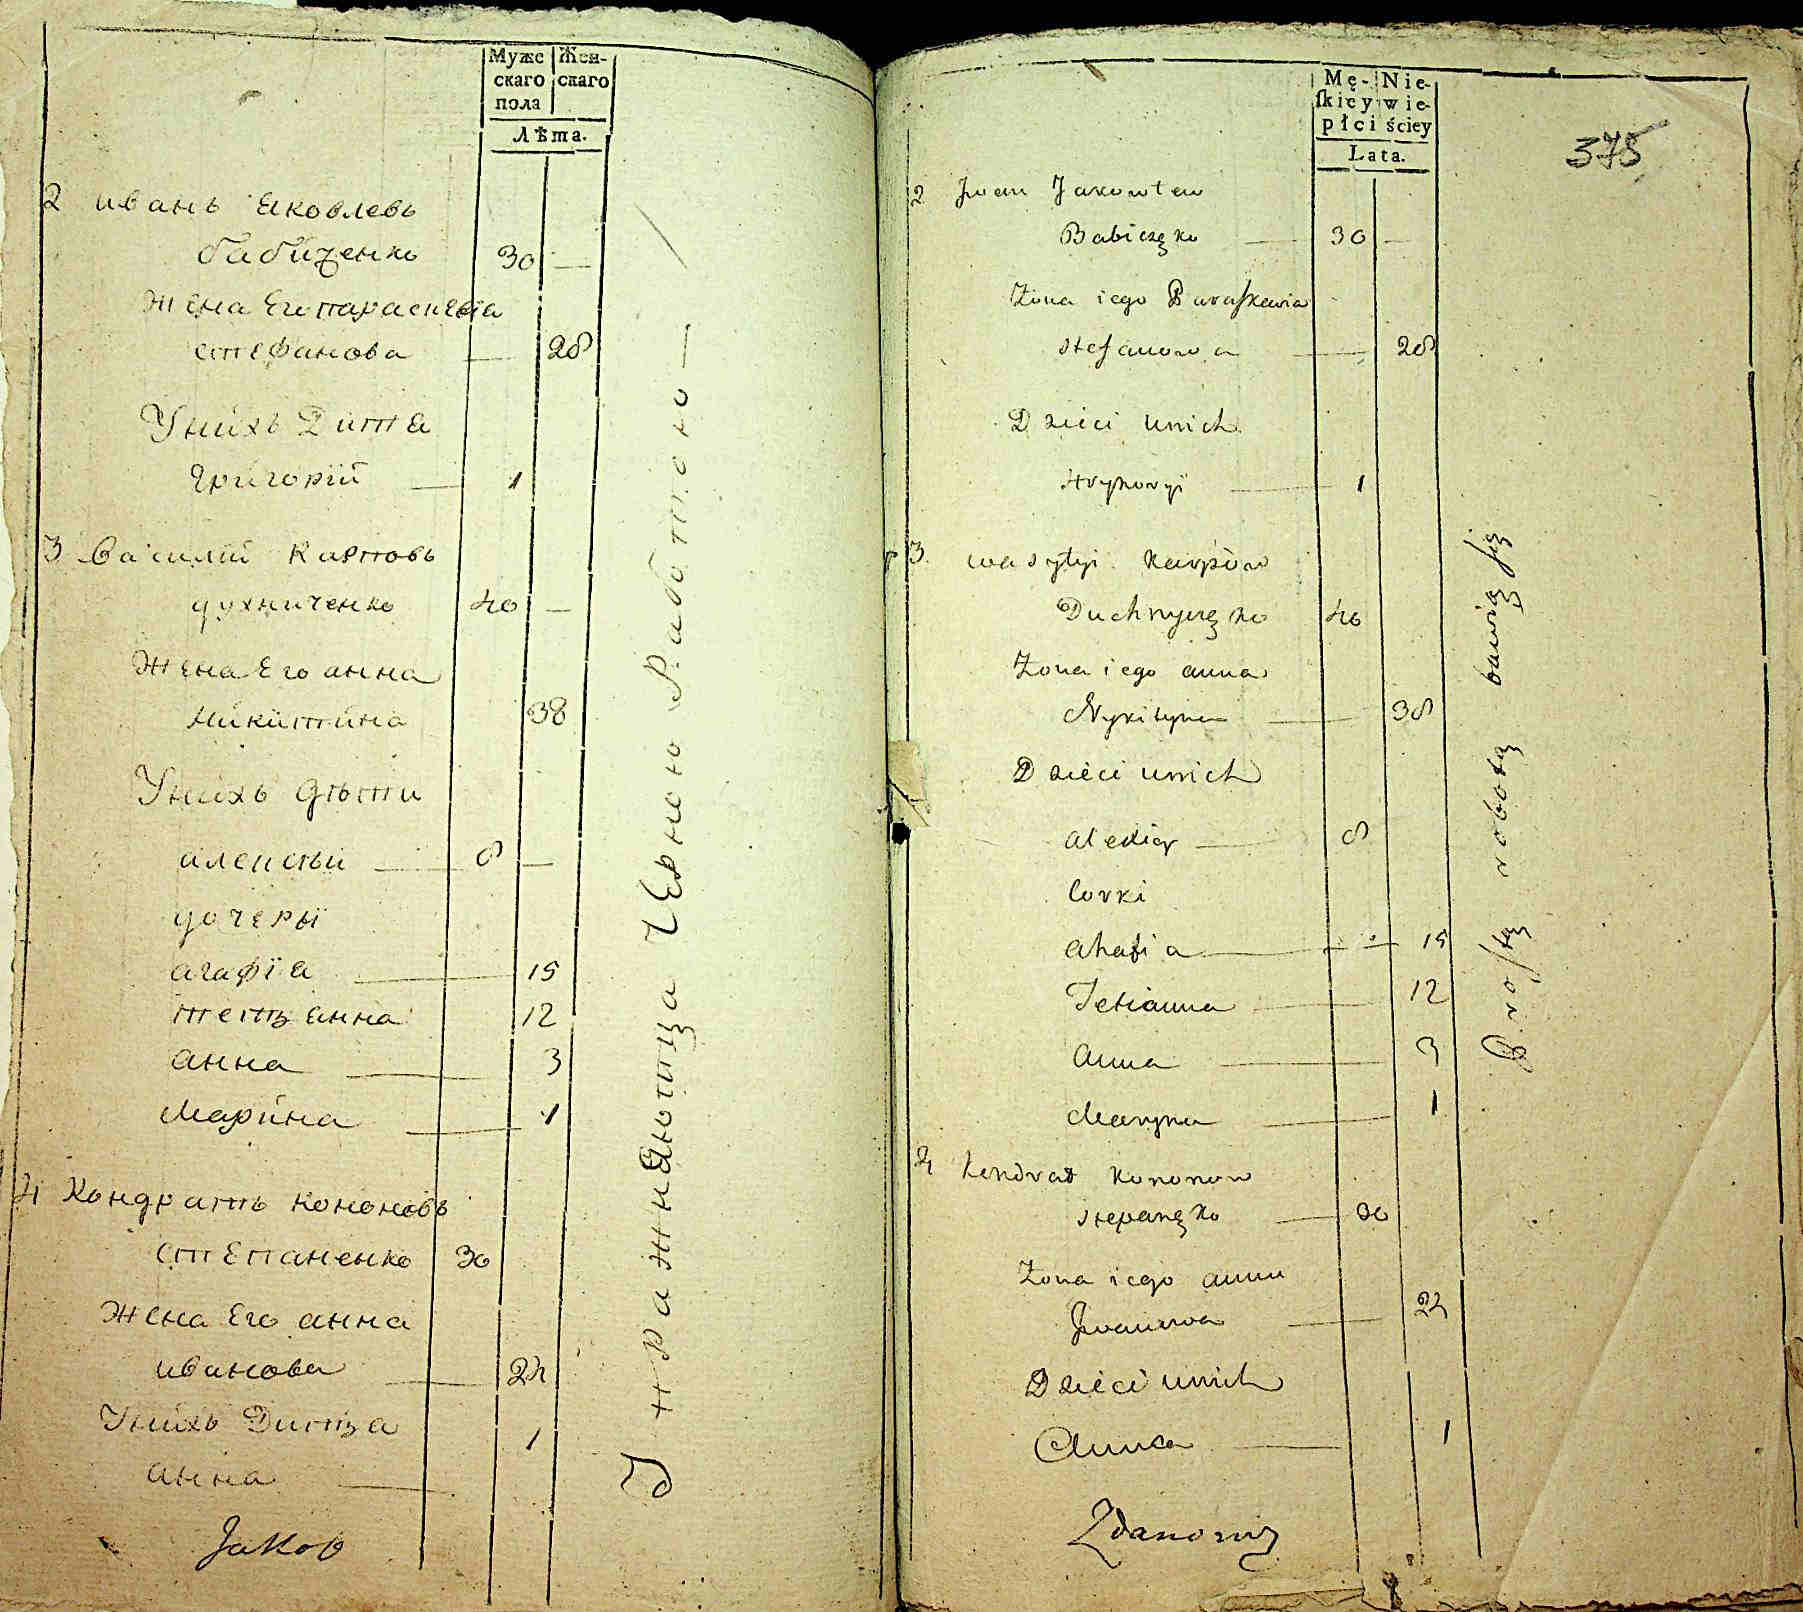 Мужс Жен-
скаго скаго
пола
Лѣта.
2 иванъ яковлевъ
бабиченко 30 —
Жена Его параскевїа
стефанова — 28
Унихъ Дитя
Григорій — 1
3 Василій Карповъ
духниченко 40 —
Жена Его анна
никитина 38
Унихъ дѣти
алексѣй — 8 —
дочеры
агафїя — 15
тетянна 12
анна — 3
Марина — 1
4 Кондратъ кононовъ
степаненко 30
Жена Его анна
иванова — 24
Унихъ Дитя
анна — 1
Jakob
Упражняются Черною Работою —
Mę- Nie-
ſkiey wie-
płci ściey
Lata.
375
2 Jwan Jakowlew
Babiczęko — 30 —
Żona iego Paraſkewia
stefanowa — 28
Dzieci unich
Hryhoryi — 1
3 wasylyi Karpów
Duchnyczęko 40
Żona iego anna
Nykityna — 38
Dzieci unich
alexiey — 8
Corki
ahafia — 15
Tetianna — 12
anna — 3
Maryna — 1
4 Kondrat Kononow
stepanęko — 30
Żona iego anna
Jwanowa — 24
Dzieci unich
Anna — 1
Proſtą robotą bawią ſię